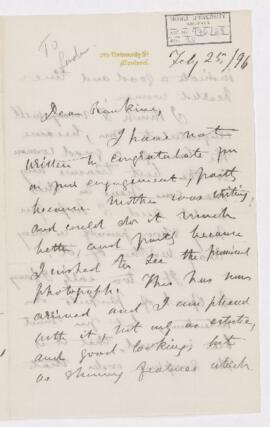 To
London
University St
Montreal.
McGILL UNIVERSITY
ARCHIVES
July 25/96
Dear Rankine,
I have not
written to congratulate you
on your engagement, partly
because Mother was writing
and could do it much
better, and partly because
I wished to see the promised
photograph. This has now
arrived and I am pleased
with it, not only as artistic,
and good looking, but
as showing features which